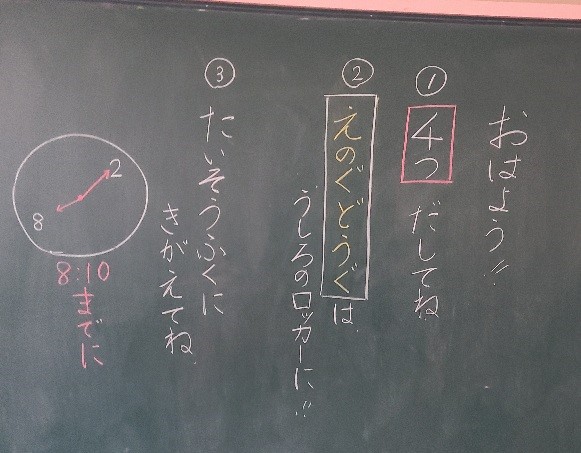 おはよう!!
①
4つ だしてね
②
えのぐどうぐは
うしろのロッカーに!!
③
たいそうふくに
きがえてね
2
8
8:10
までに